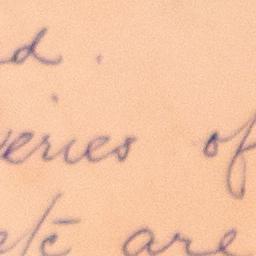 d.
veries of
etc are